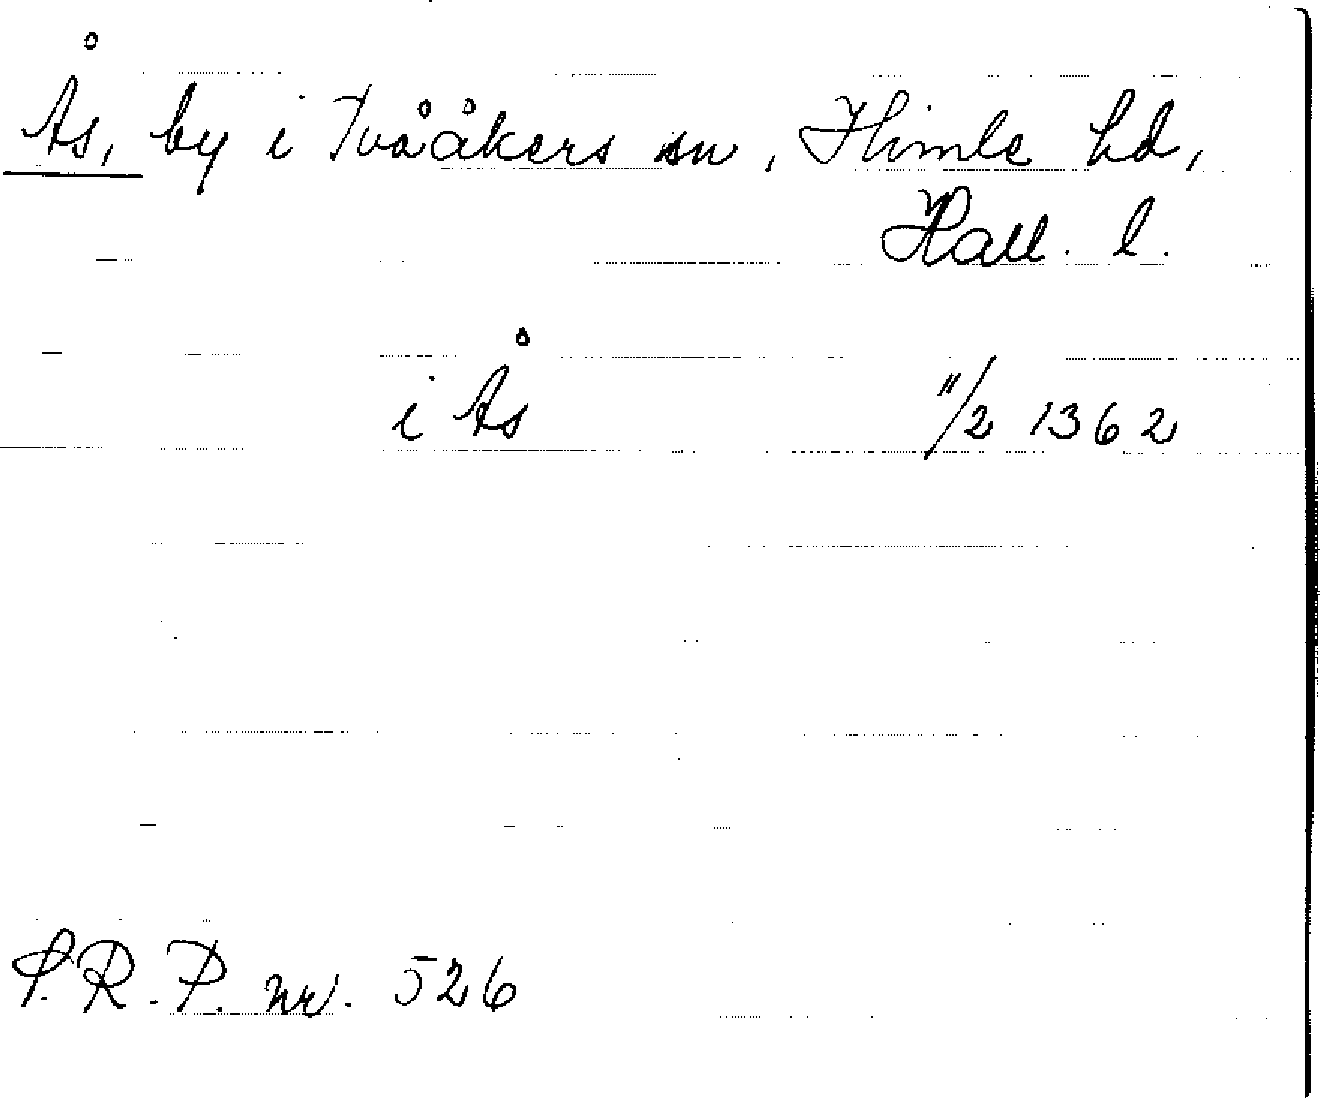 Ås, by i Tvååkers sn, Himle hd,
Hall. l.
i Ås 11/2 1362
S.R.P. nr. 526